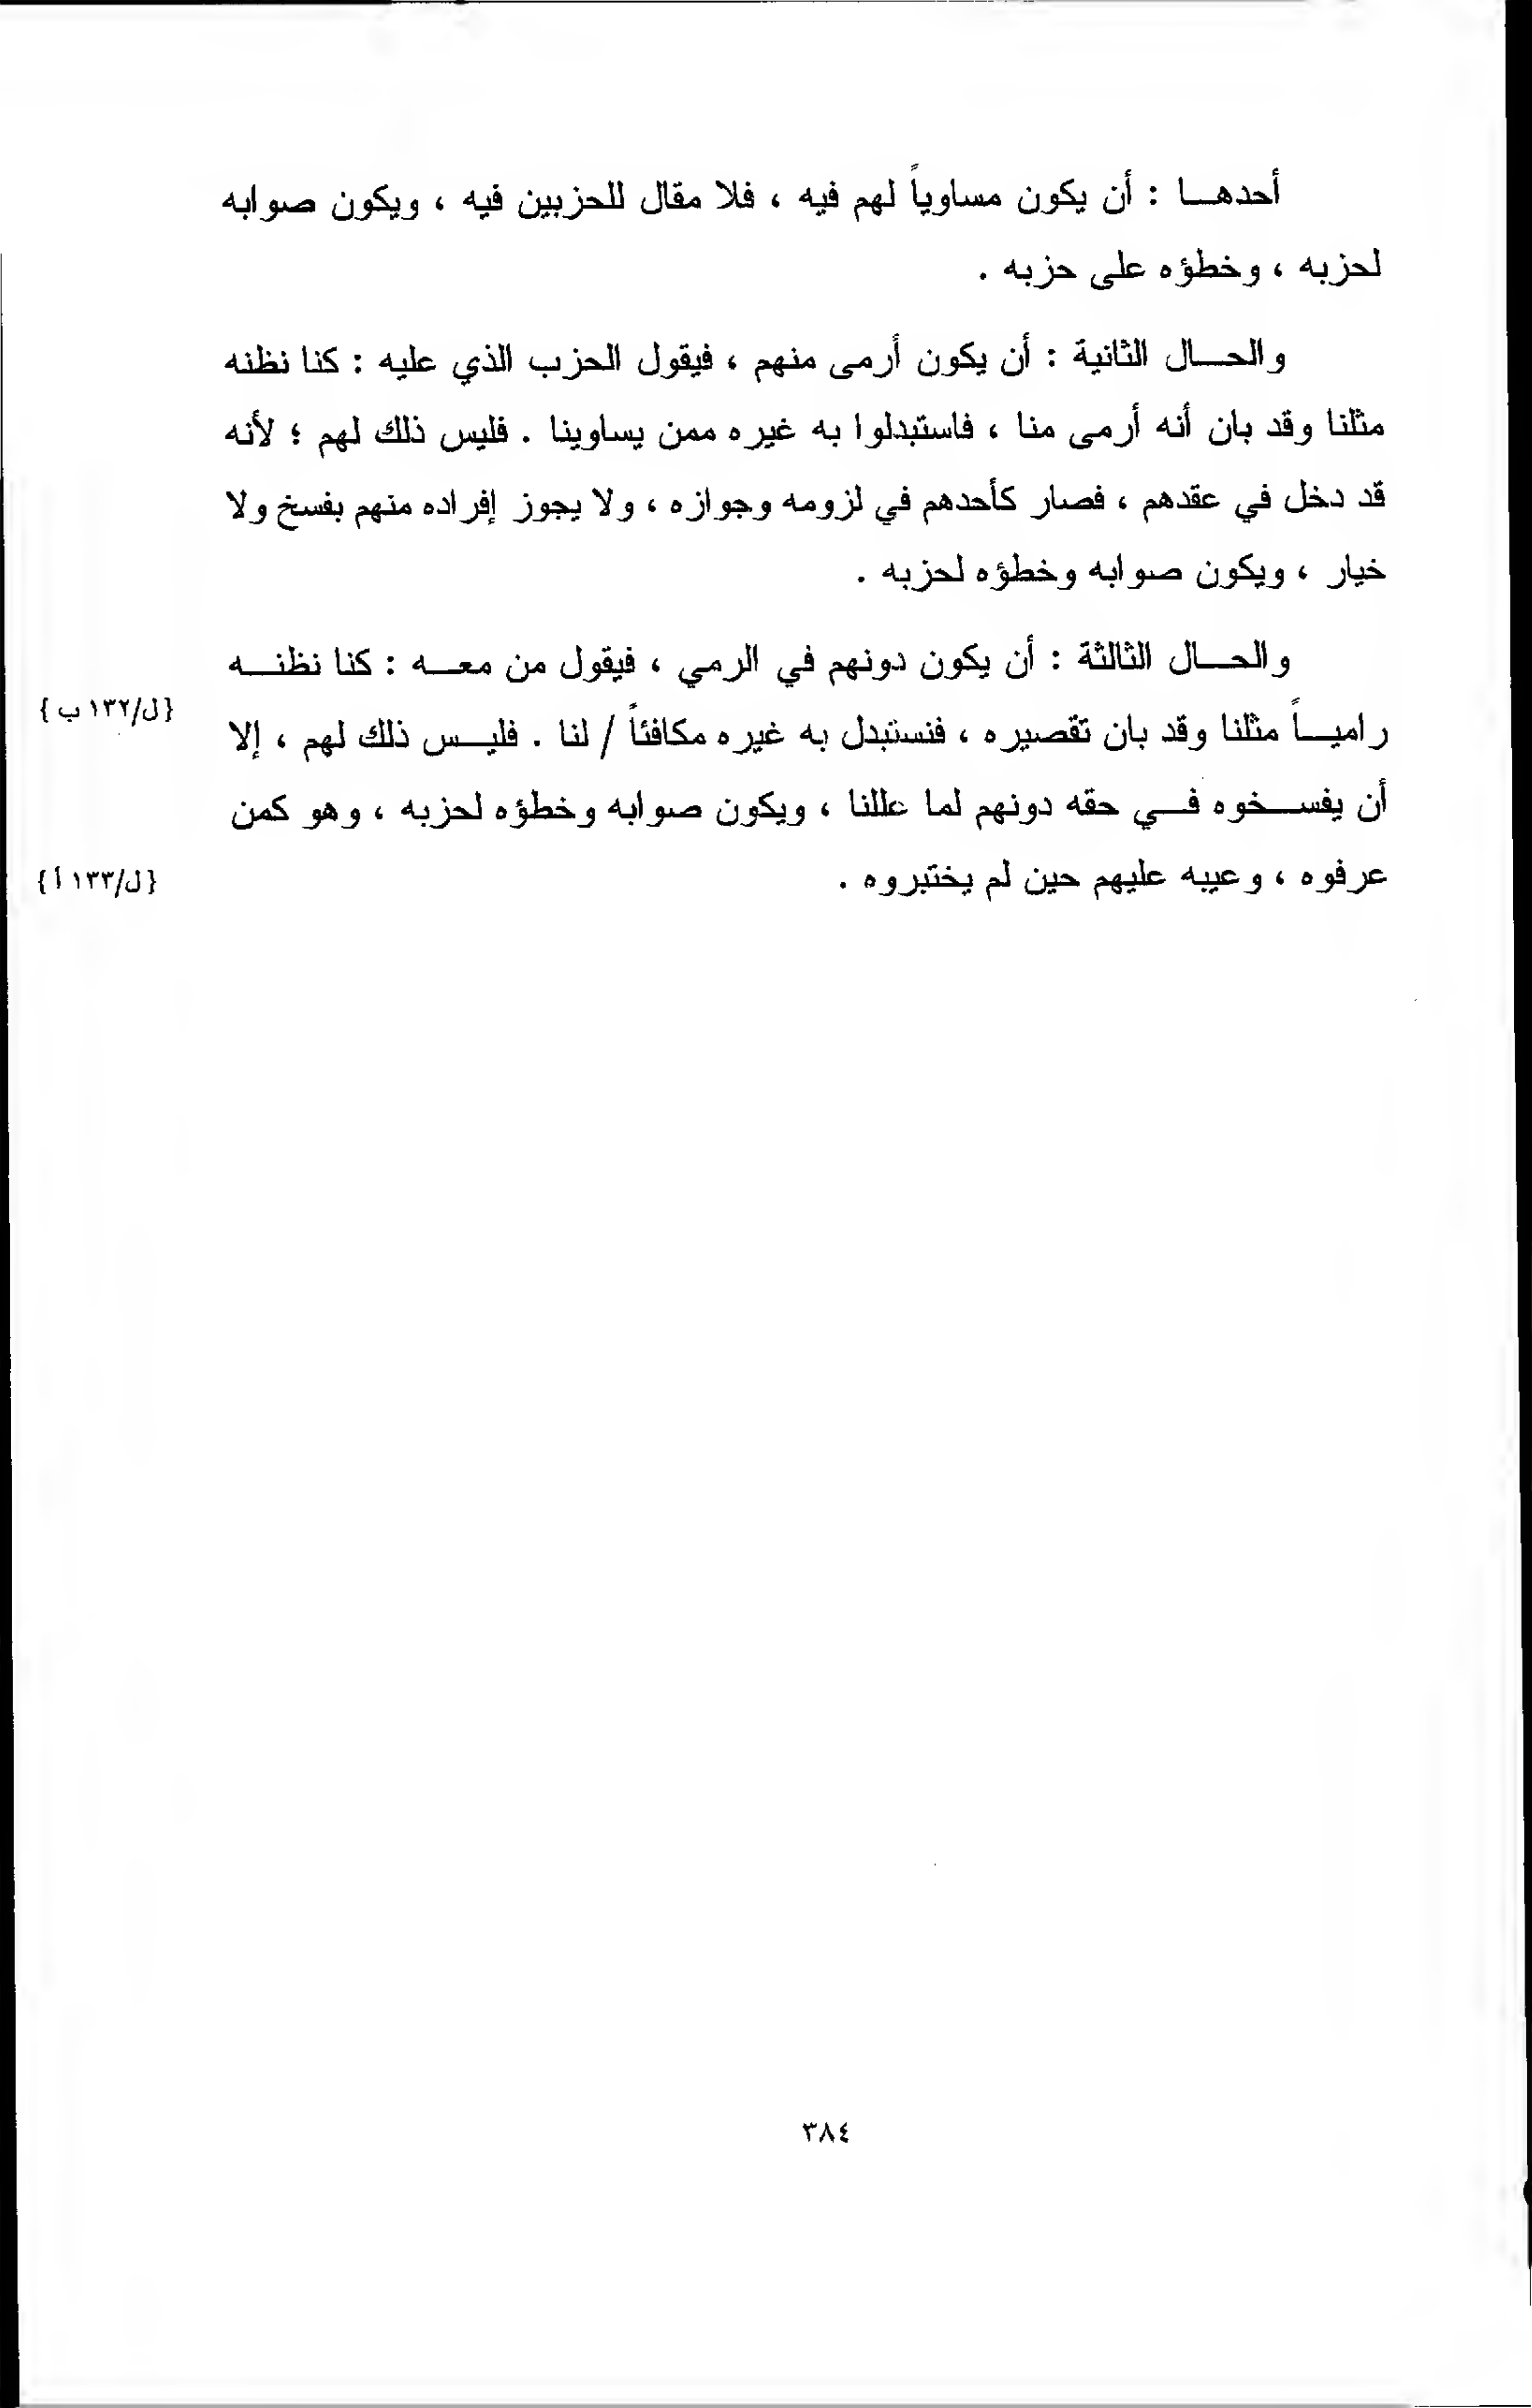 أحدهـــا : أن يكون مساوياً لهم فيه ، فلا مقال للحزبين فيه ، ويكون صوابه
لحزبه ، وخطؤه على حزبه .
والحـــال الثانية : أن يكون أرمى منهم ، فيقول الحزب الذي عليه : كنا نظنه
مثلنا وقد بان أنه أرمى منا ، فاستبدلوا به غيره ممن يساوينا . فليس ذلك لهم ؛ لأنه
قد دخل في عقدهم ، فصار كأحدهم في لزومه وجوازه ، ولا يجوز إفراده منهم بفسخ ولا
خيار ، ويكون صوابه وخطؤه لحزبه .
والحـــال الثالثة : أن يكون دونهم في الرمي ، فيقول من معـــه : كنا نظنـــه
راميـــاً مثلنا وقد بان تقصيره ، فنستبدل به غيره مكافئاً / لنا . فليـــس ذلك لهم ، إلا
{ل/١٣٢ ب}
أن يفســـخوه فـــي حقه دونهم لما عللنا ، ويكون صوابه وخطؤه لحزبه ، وهو كمن
عرفوه ، وعيبه عليهم حين لم يختبروه .
{ل/١٣٣ أ}
٣٨٤